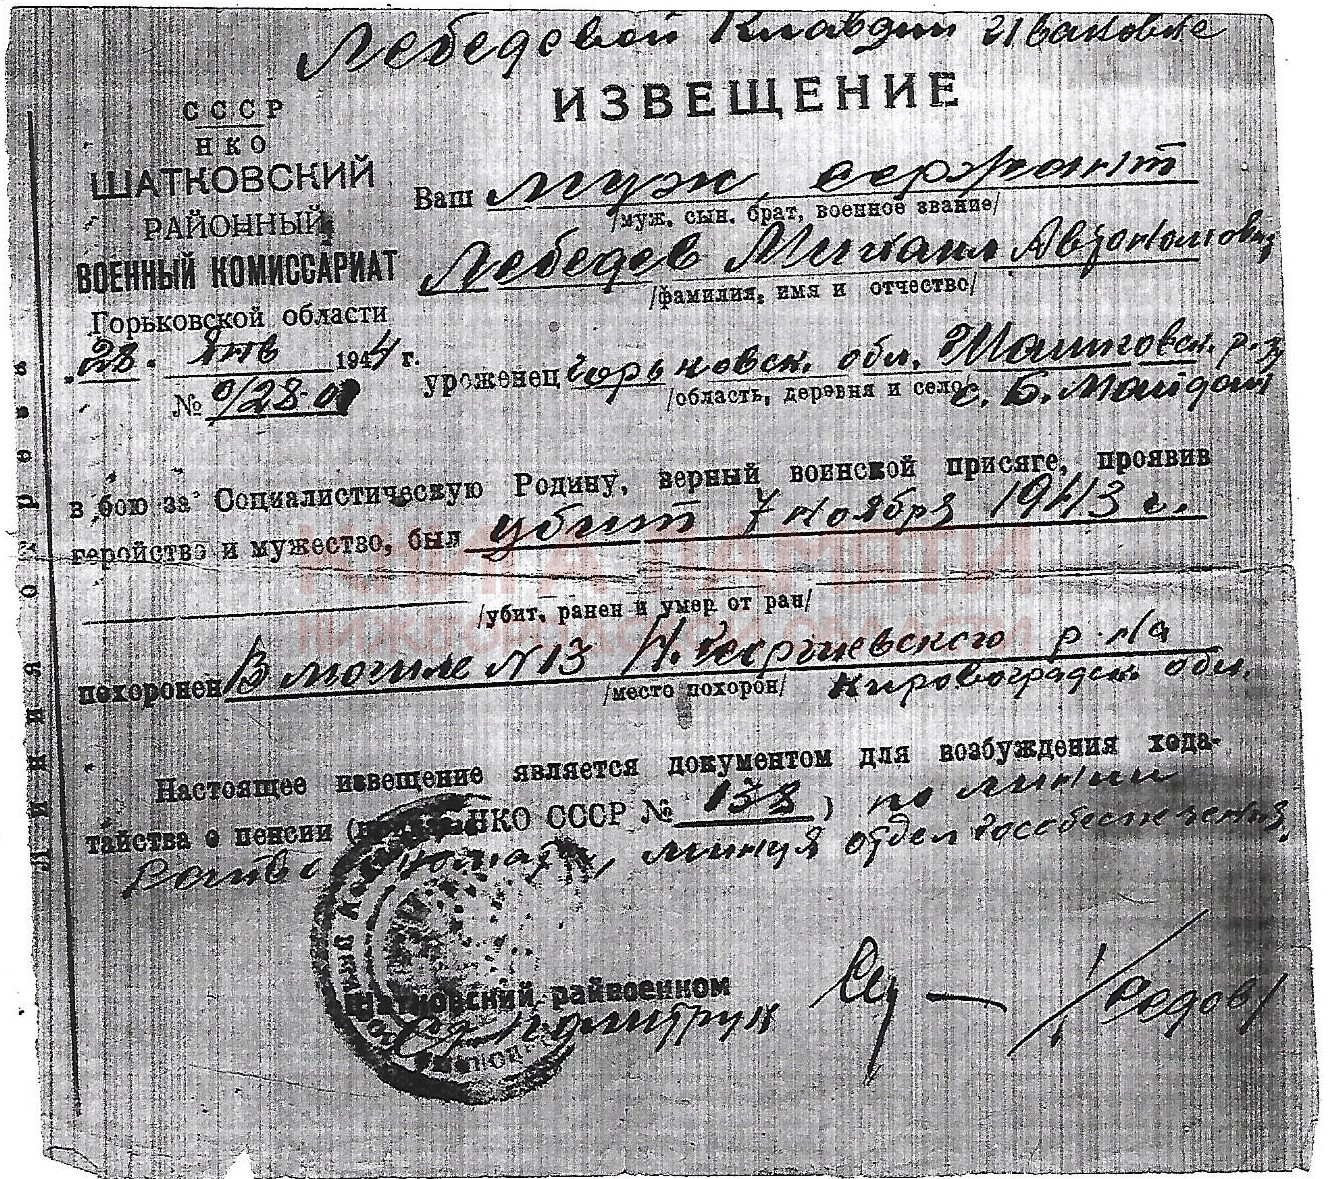 Лебедевой Клавдии Ивановне
ИЗВЕЩЕНИЕ
СССР
НКО
ШАТКОВСКИЙ
РАЙОННЫЙ
ВОЕННЫЙ КОМИССАРИАТ
Горьковской области
28. янв 1944 г.
№ 0/28-01
Ваш муж, сержант
/муж, сын, брат, военное звание/
Лебедев Михаил Автономович
/фамилия, имя и отчество/
уроженец Горьковск. обл. Шатковск. р-на
/область, деревня и село/ с. Б. Майдан
в бою за Социалистическую Родину, верный воинской присяге, проявив
геройство и мужество, был убит 7 ноября 1943 г.
/убит, ранен и умер от ран/
похоронен В могиле N 13 Н. Георгиевского р-на
/место похорон/ Кировоградск. обл.
Настоящее извещение является документом для возбуждения хода-
тайства о пенсии НКО СССР № 138) по линии
минуя отдел гособеспечения.
Шатковский райвоенком
Ст. политрук /Седов/
Линия отреза
КНИГА ПАМЯТИ
НИЖЕГОРОДСКОЙ ОБЛАСТИ